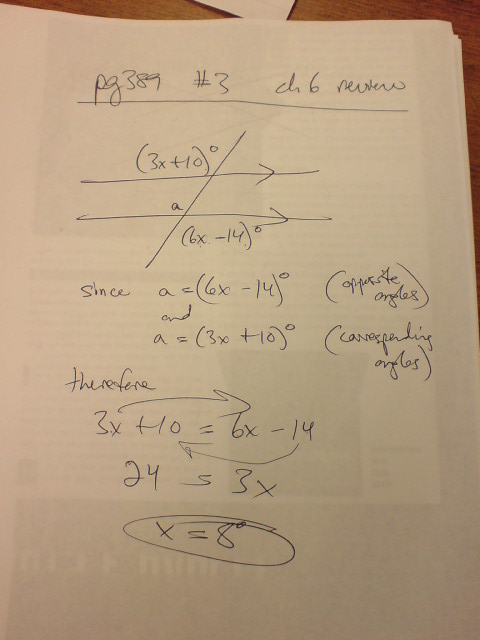 pg389 #3 ch 6 review
(3x+10)°
a
(6x-14)°
since a = (6x - 14)° (opposite angles)
and
a = (3x + 10)° (corresponding angles)
therefore
3x + 10 = 6x - 14
24 = 3x
x = 8°